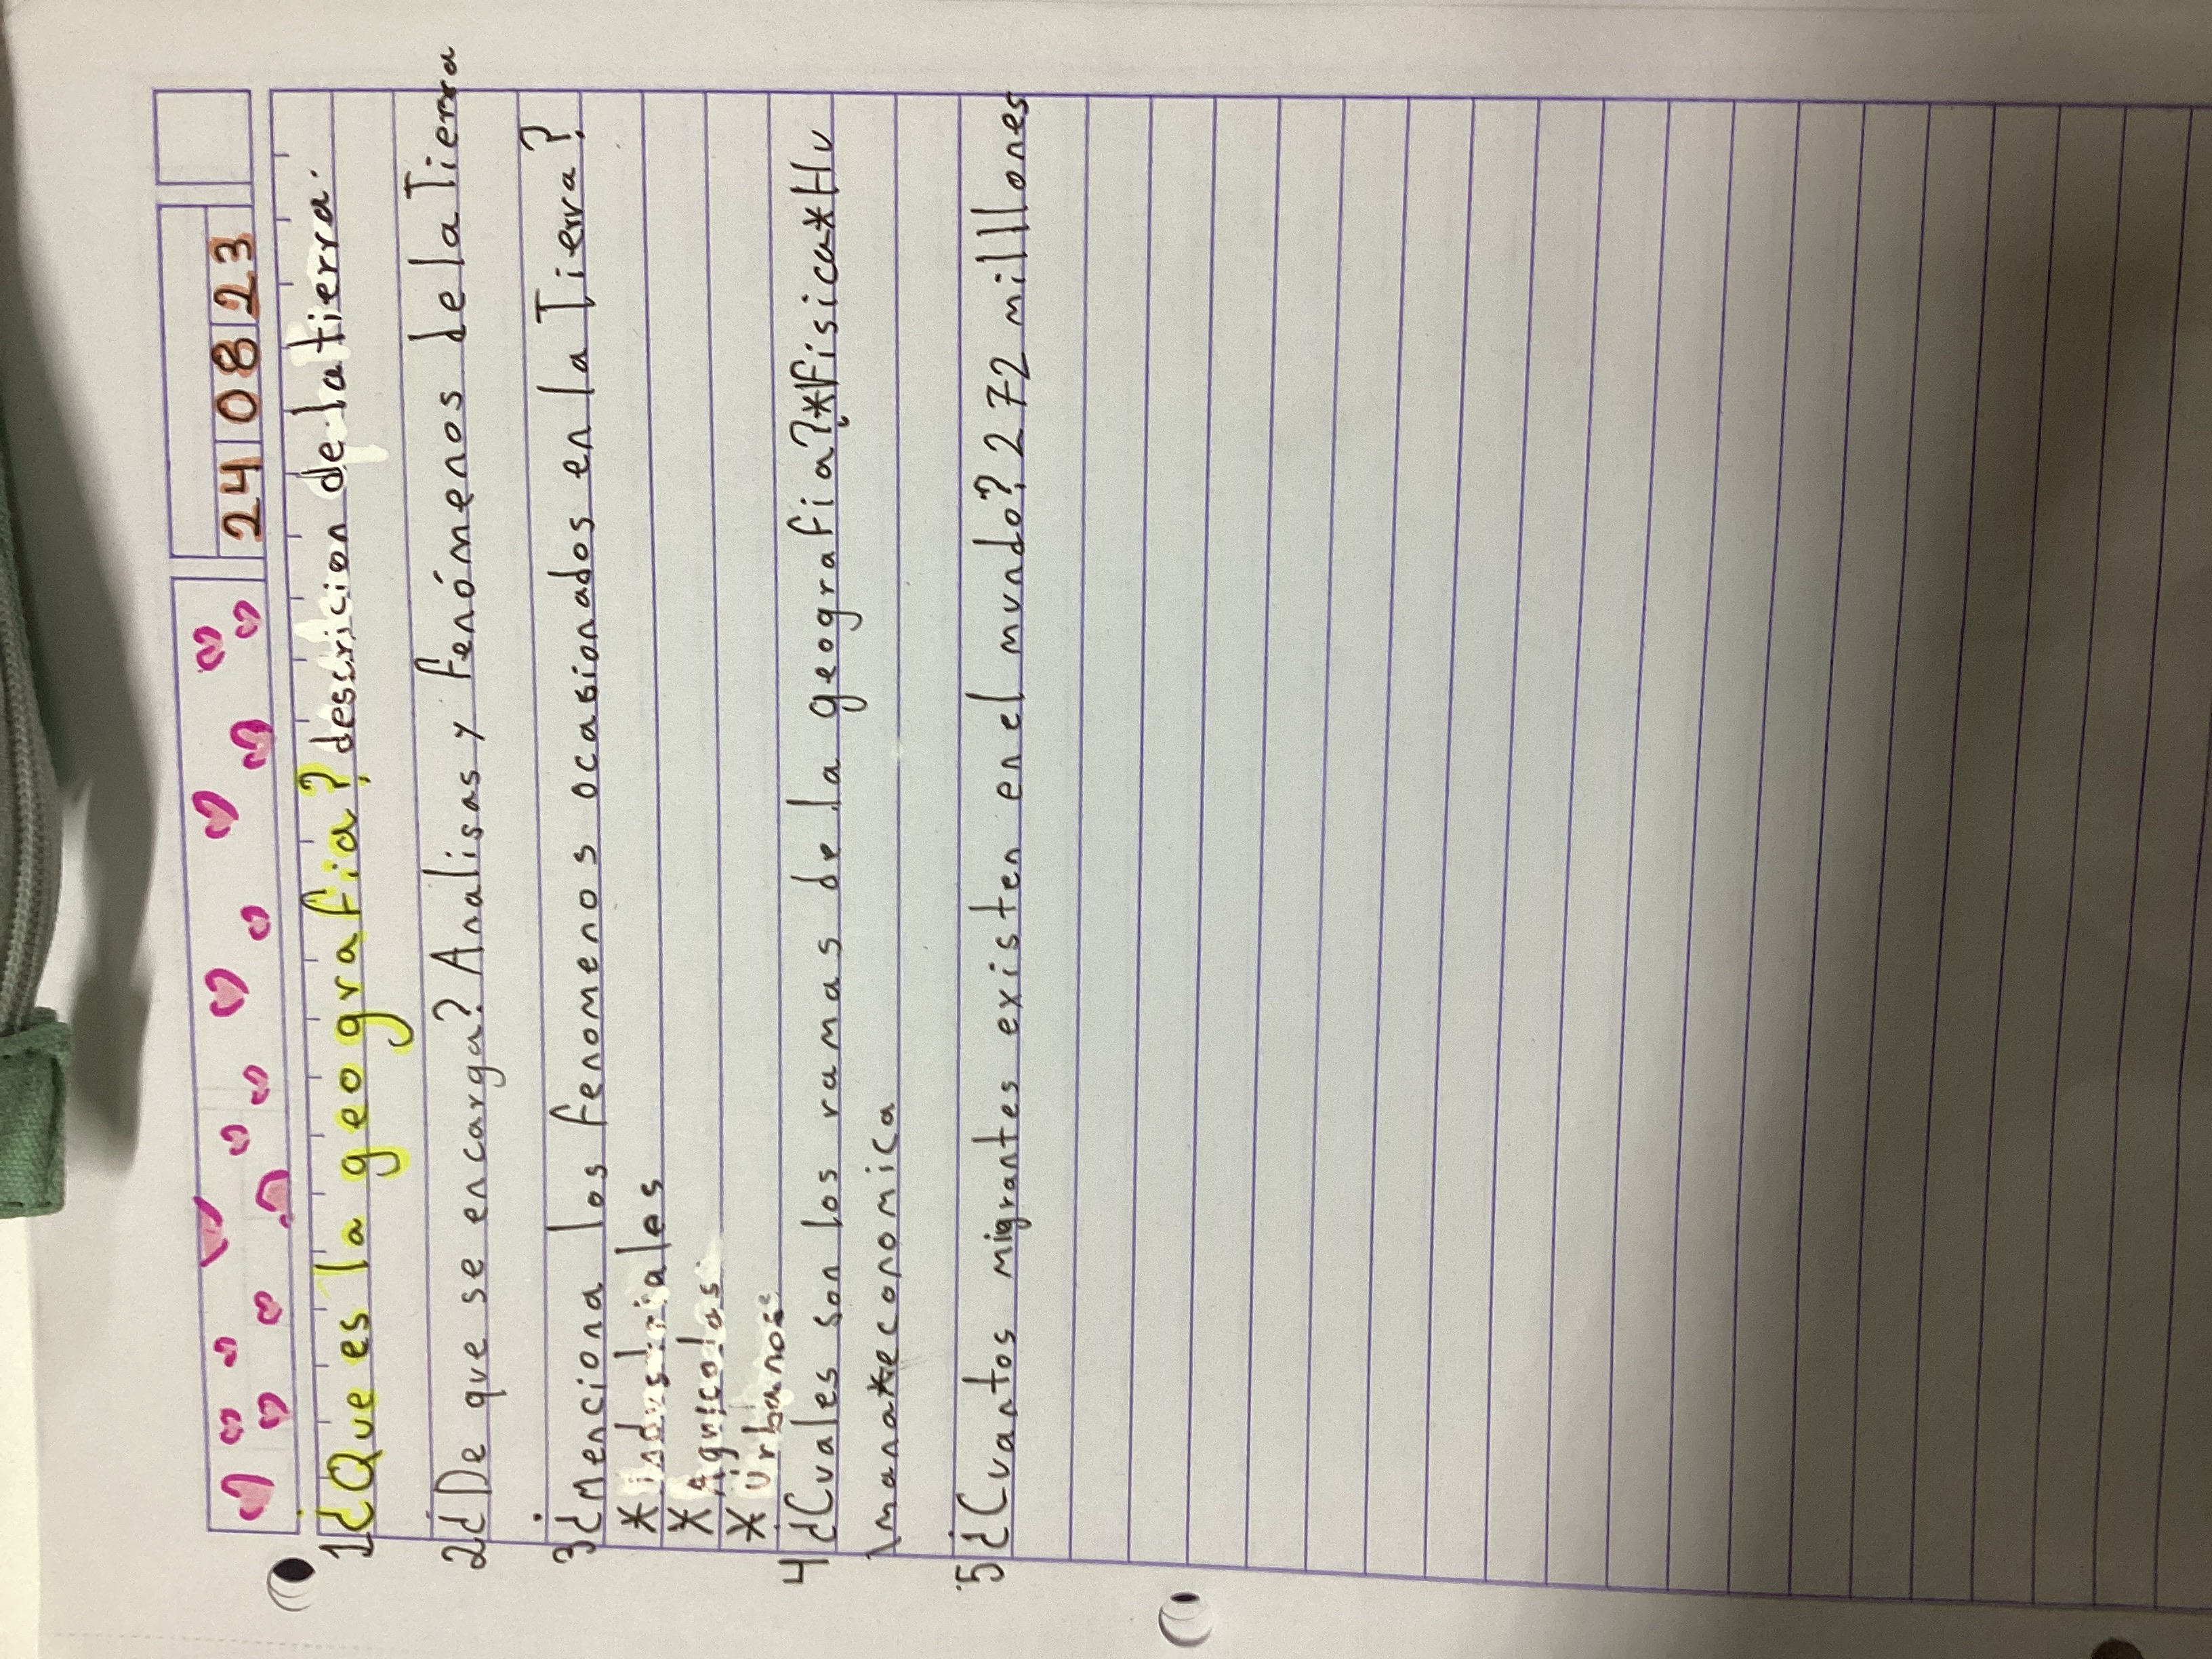 24 08 23
1¿Que es la geografia? descricion de la tierra.
2¿De que se encarga? Analisas y fenómenos de la Tierra
3¿Menciona los fenomenos ocasionados en la Tierra?
* industriales
* Agricolas
* Urbanos
4¿Cuales son los ramas de la geografia?*Fisica*Hu
\mana*economica
5¿Cuantos migrantes existen en el mundo? 272 millones